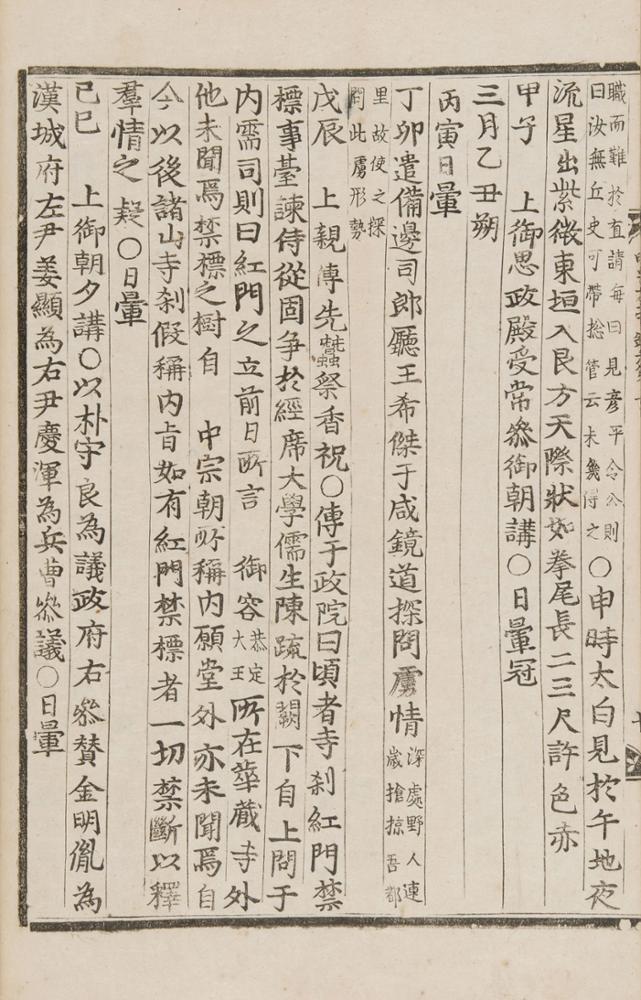 職而難於直請每曰見彥平令公則
曰汝無丘史可帶捴管云未幾得之
○申時太白見於午地夜
流星出紫微東垣入艮方天際狀如拳尾長二三尺許色赤
甲子 上御思政殿受常參御朝講○日暈冠
三月乙丑朔
丙寅日暈
丁卯遣備邊司郎廳王希傑于咸鏡道探問虜情
深處野人連
歲搶掠吾鄰
里故使之探
問此虜形勢
戊辰 上親傳先蠶祭香祝○傳于政院曰頃者寺刹紅門禁
標事臺諫侍從固爭於經席大學儒生陳疏於闕下自上問于
內需司則曰紅門之立前日所言 御容
恭定
大王
所在華藏寺外
他未聞焉禁標之樹自 中宗朝所稱內願堂外亦未聞焉自
今以後諸山寺刹假稱內旨如有紅門禁標者一切禁斷以釋
羣情之疑○日暈
己巳 上御朝夕講○以朴宇良為議政府右參贊金明胤為
漢城府左尹姜顯為右尹慶渾為兵曹參議○日暈